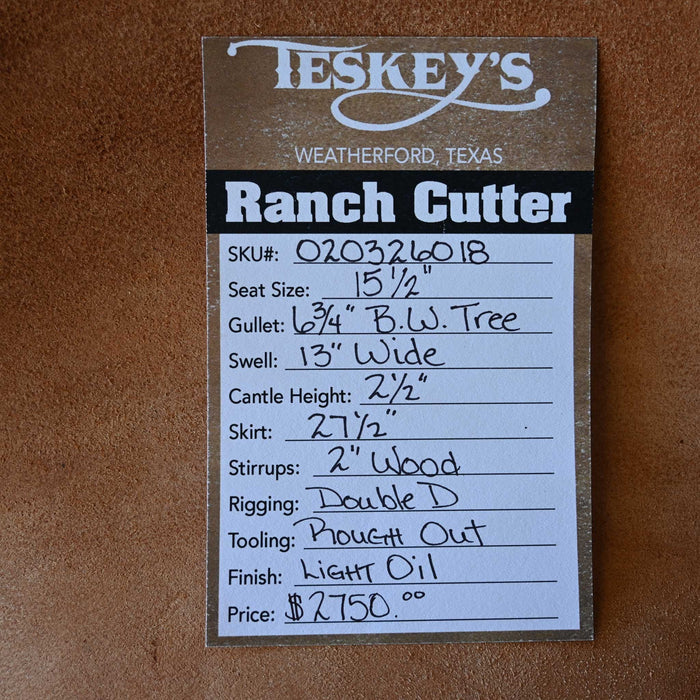 TESKEY'S
WEATHERFORD, TEXAS
Ranch Cutter
SKU#: 020326018
Seat Size: 15 1/2"
Gullet: 6 3/4" B.W. Tree
Swell: 13" Wide
Cantle Height: 2 1/2"
Skirt: 27 1/2"
Stirrups: 2" Wood
Rigging: Double D
Tooling: Rough Out
Finish: Light Oil
Price: $2750.00